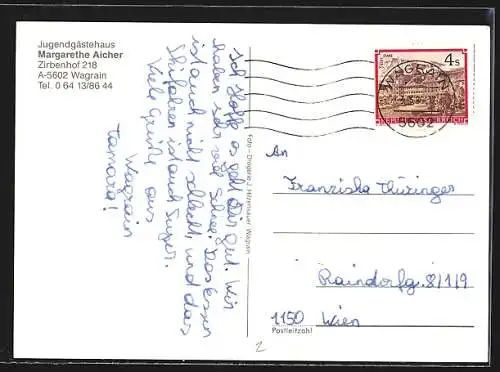 Jugendgästehaus
Margarethe Aicher
Zirbenhof 218
A-5602 Wagrain
Tel. 0 64 13/86 44
Ich hoffe es geht Dir gut. Wir
haben sehr viel Schnee. Das Essen
ist auch nicht schlecht, und das
Skifahren ist auch super.
Viele Grüße aus
Wagrain
Tamara!
Foto - Drogerie J. Hitzmauer Wagrain
4s
WAGRAIN
5602
An
Franziska Thüringer
Raindorfg. 8/1/9
1150 Wien
Postleitzahl
2